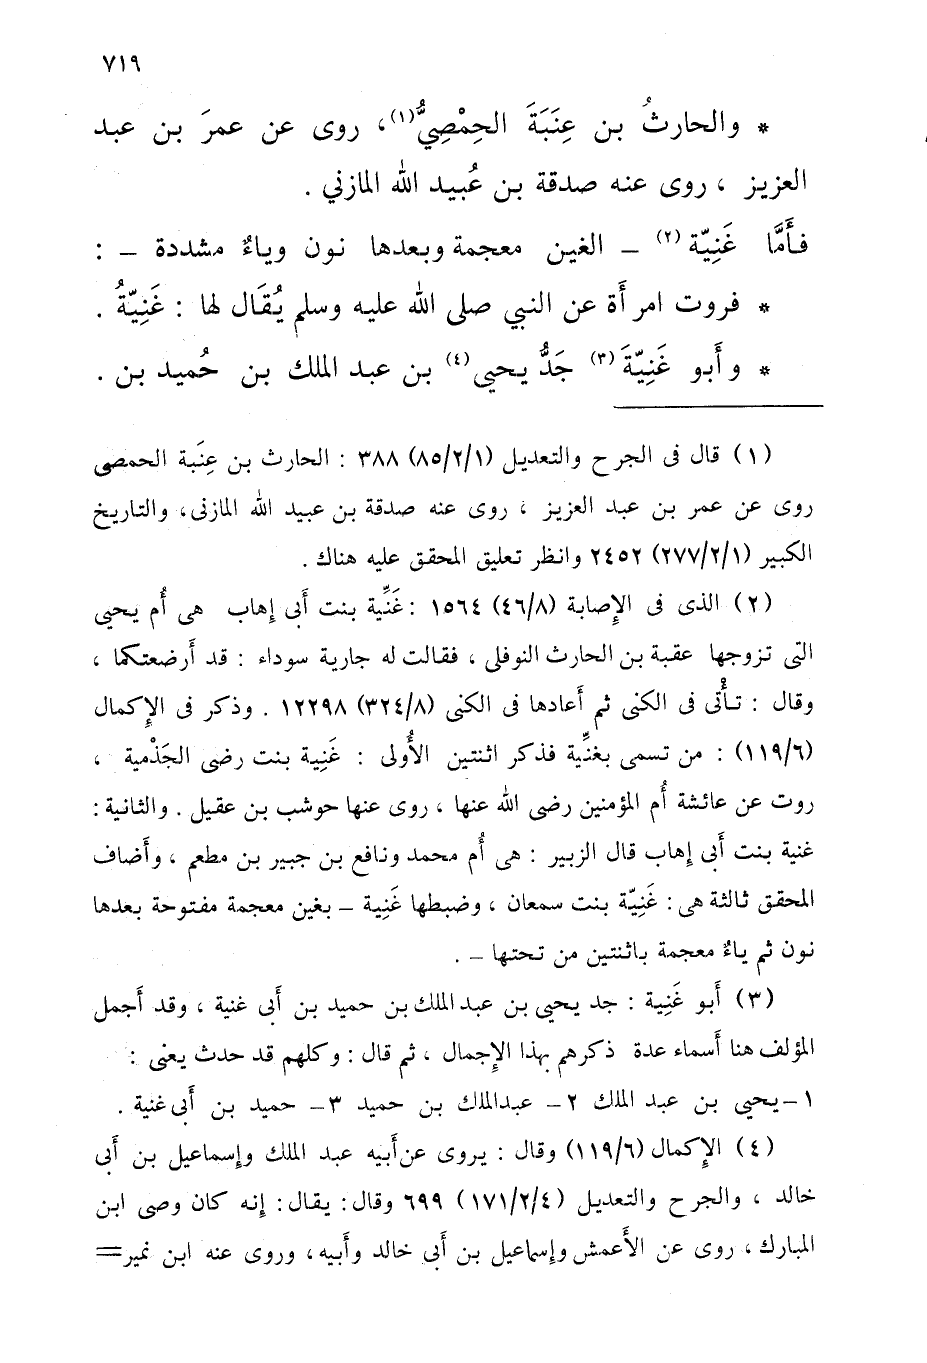 ٧١٩
* والحارثُ بن عِنَبَةَ الحِمْصِيُّ(١)، روى عن عمرَ بن عبد
العزيز ، روى عنه صدقة بن عُبيد الله المازني .
فأَمَّا غَنِيّة (٢) ــ الغين معجمة وبعدها نون وياءٌ مشددة ــ :
* فروت امرأَة عن النبي صلى الله عليه وسلم يُقَال لها : غَنِيّةُ .
* وأَبو غَنِيّةَ (٣) جَدُّ يحيى (٤) بن عبد الملك بن حُميد بن .
(١) قال فى الجرح والتعديل (٨٥/٢/١) ٣٨٨ : الحارث بن عِنَبة الحمصى
روى عن عمر بن عبد العزيز ، روى عنه صدقة بن عبيد الله المازنى، والتاريخ
الكبير (٢٧٧/٢/١) ٢٤٥٢ وانظر تعليق المحقق عليه هناك .
(٢) الذى فى الإصابة (٤٦/٨) ١٥٦٤ : غَنِّية بنت أَبى إهاب هى أُم يحيى
التى تزوجها عقبة بن الحارث النوفلى ، فقالت له جارية سوداء : قد أَرضعتكما ،
وقال : تأْتى فى الكنى ثم أَعادها فى الكنى (٣٢٤/٨) ١٢٢٩٨ . وذكر فى الإكمال
(١١٩/٦) : من تسمى بغنِّية فذكر اثنتين الأُولى : غَنِية بنت رضى الجَذْمية ،
روت عن عائشة أُم المؤمنين رضى الله عنها ، روى عنها حوشب بن عقيل . والثانية :
غنية بنت أَبى إهاب قال الزبير : هى أُم محمد ونافع بن جبير بن مطعم ، وأَضاف
المحقق ثالثة هى : غَنِيّة بنت سمعان ، وضبطها غَنِية ــ بغين معجمة مفتوحة بعدها
نون ثم ياءٌ معجمة باثنتين من تحتها ــ .
(٣) أَبو غَنِية : جد يحيى بن عبد الملك بن حميد بن أَبى غنية ، وقد أَجمل
المؤلف هنا أَسماء عدة ذكرهم بهذا الإجمال ، ثم قال : وكلهم قد حدث يعنى :
١ــ يحيى بن عبد الملك ٢ــ عبدالملك بن حميد ٣ــ حميد بن أَبى غنية .
(٤) الإكمال (١١٩/٦) وقال : يروى عن أَبيه عبد الملك وإسماعيل بن أَبى
خالد ، والجرح والتعديل (١٧١/٢/٤) ٦٩٩ وقال : يقال : إنه كان وصى ابن
المبارك ، روى عن الأَعمش وإسماعيل بن أَبى خالد وأَبيه ، وروى عنه ابن نمير=